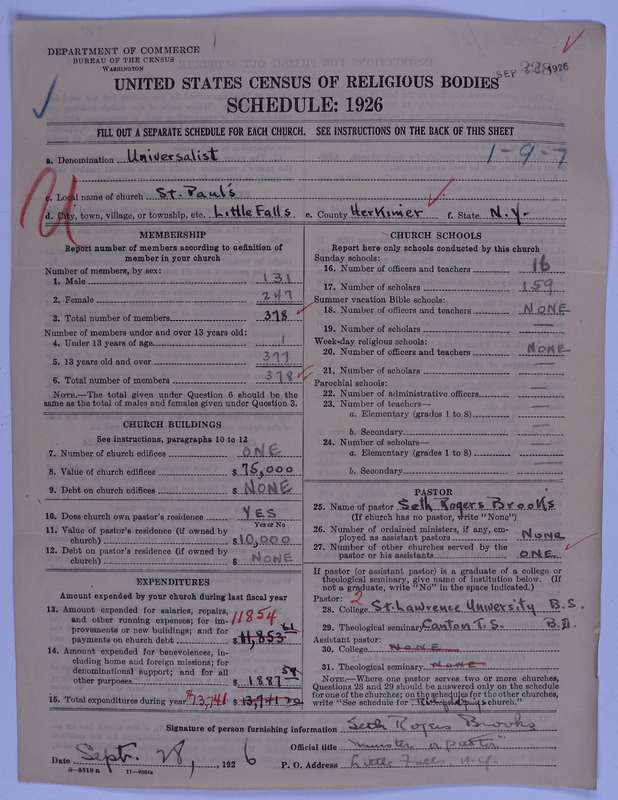 DEPARTMENT OF COMMERCE
BUREAU OF THE CENSUS
WASHINGTON
SEP 1926
UNITED STATES CENSUS OF RELIGIOUS BODIES
SCHEDULE: 1926
FILL OUT A SEPARATE SCHEDULE FOR EACH CHURCH. SEE INSTRUCTIONS ON THE BACK OF THIS SHEET
a. Denomination Universalist 1-9-7
c. Local name of church St. Paul's
U
d. City, town, village, or township, etc. Little Falls e. County Herkimer f. State N.Y.
MEMBERSHIP
Report number of members according to definition of
member in your church
Number of members, by sex:
1. Male 131
2. Female 247
3. Total number of members 378
Number of members under and over 13 years old:
4. Under 13 years of age 1
5. 13 years old and over 377
6. Total number of members 378
NOTE.—The total given under Question 6 should be
same as the total of males and females given under Question 3.
CHURCH BUILDINGS
See instructions, paragraphs 10 to 12
7. Number of church edifices ONE
8. Value of church edifices $ 75,000
9. Debt on church edifices $ NONE
10. Does church own pastor's residence YES
Yes or No
11. Value of pastor's residence (if owned by
church) $10,000
12. Debt on pastor's residence (if owned by
church) $ NONE
EXPENDITURES
Amount expended by your church during last fiscal year
13. Amount expended for salaries, repairs,
and other running expenses; for im-
provements or new buildings; and for
payments on church debt 11854 $ 11,853 61
14. Amount expended for benevolences, in-
cluding home and foreign missions; for
denominational support; and for all
other purposes $ 1887 59
15. Total expenditures during year $13,741 $ 13,741 20
CHURCH SCHOOLS
Report here only schools conducted by this church
Sunday schools:
16. Number of officers and teachers 16
17. Number of scholars 159
Summer vacation Bible schools:
18. Number of officers and teachers NONE
19. Number of scholars —
Week-day religious schools:
20. Number of officers and teachers NONE
21. Number of scholars —
Parochial schools:
22. Number of administrative officers —
23. Number of teachers—
a. Elementary (grades 1 to 8) —
b. Secondary —
24. Number of scholars—
a. Elementary (grades 1 to 8) —
b. Secondary —
PASTOR
25. Name of pastor Seth Rogers Brooks
(If church has no pastor, write "None")
26. Number of ordained ministers, if any, em-
ployed as assistant pastors None
27. Number of other churches served by the
pastor or his assistants ONE
If pastor (or assistant pastor) is a graduate of a college or
theological seminary, give name of institution below. (If
not a graduate, write "No" in the space indicated.)
Pastor: 2
28. College St. Lawrence University B.S.
29. Theological seminary Canton T.S. B.D.
Assistant pastor:
30. College NONE
31. Theological seminary NONE
NOTE.—Where one pastor serves two or more churches,
Questions 28 and 29 should be answered only on the schedule
for one of the churches; on the schedules for the other churches,
write "See schedule for church."
Signature of person furnishing information Seth Rogers Brooks
Official title "minister or pastor"
Date Sept. 28, 1926 P. O. Address Little Falls, N.Y.
8—5518a 11—9056a